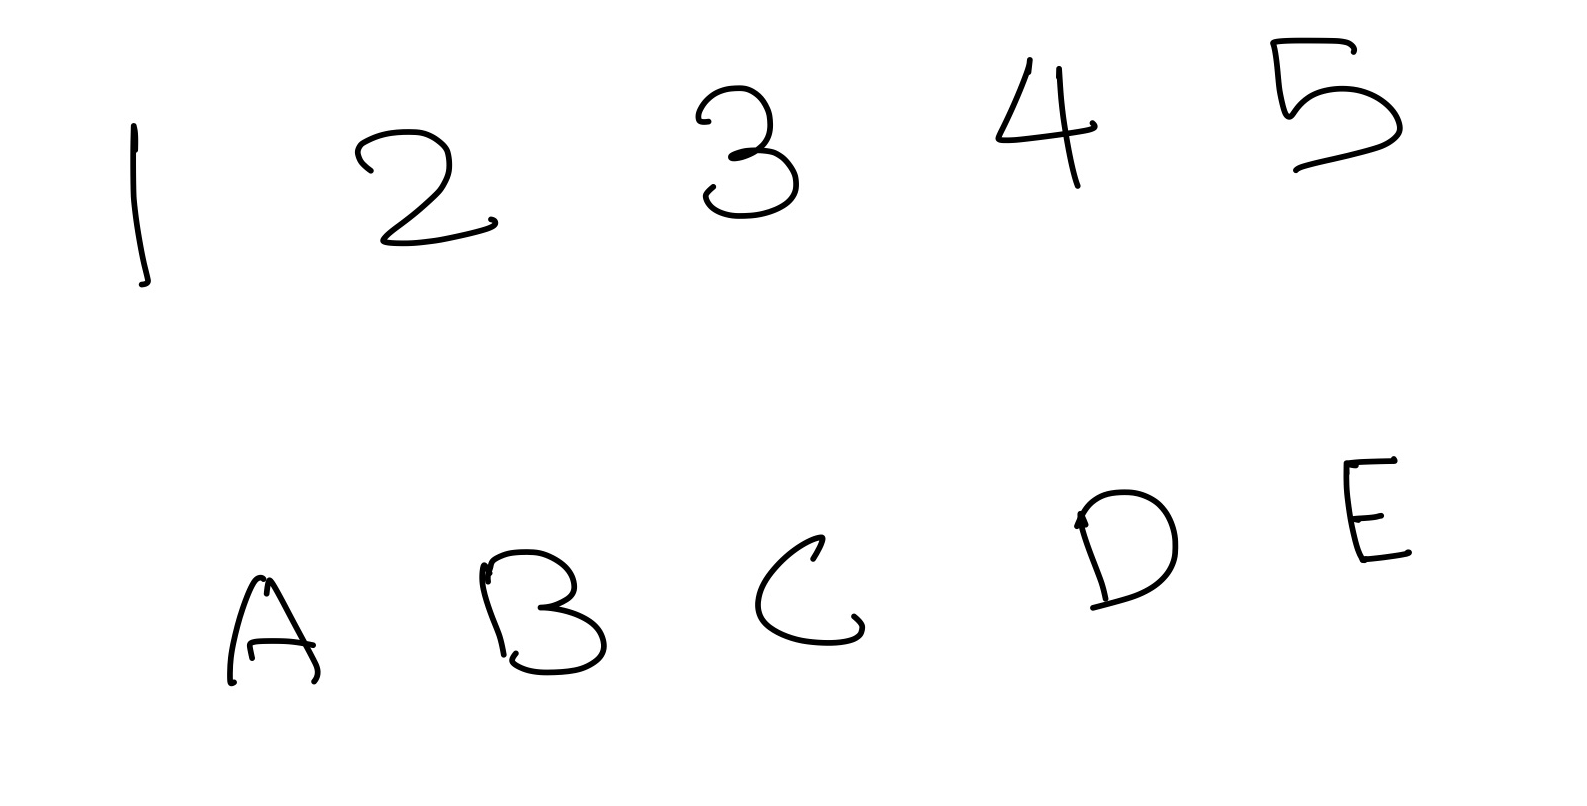 1 2 3 4 5
A B C D E